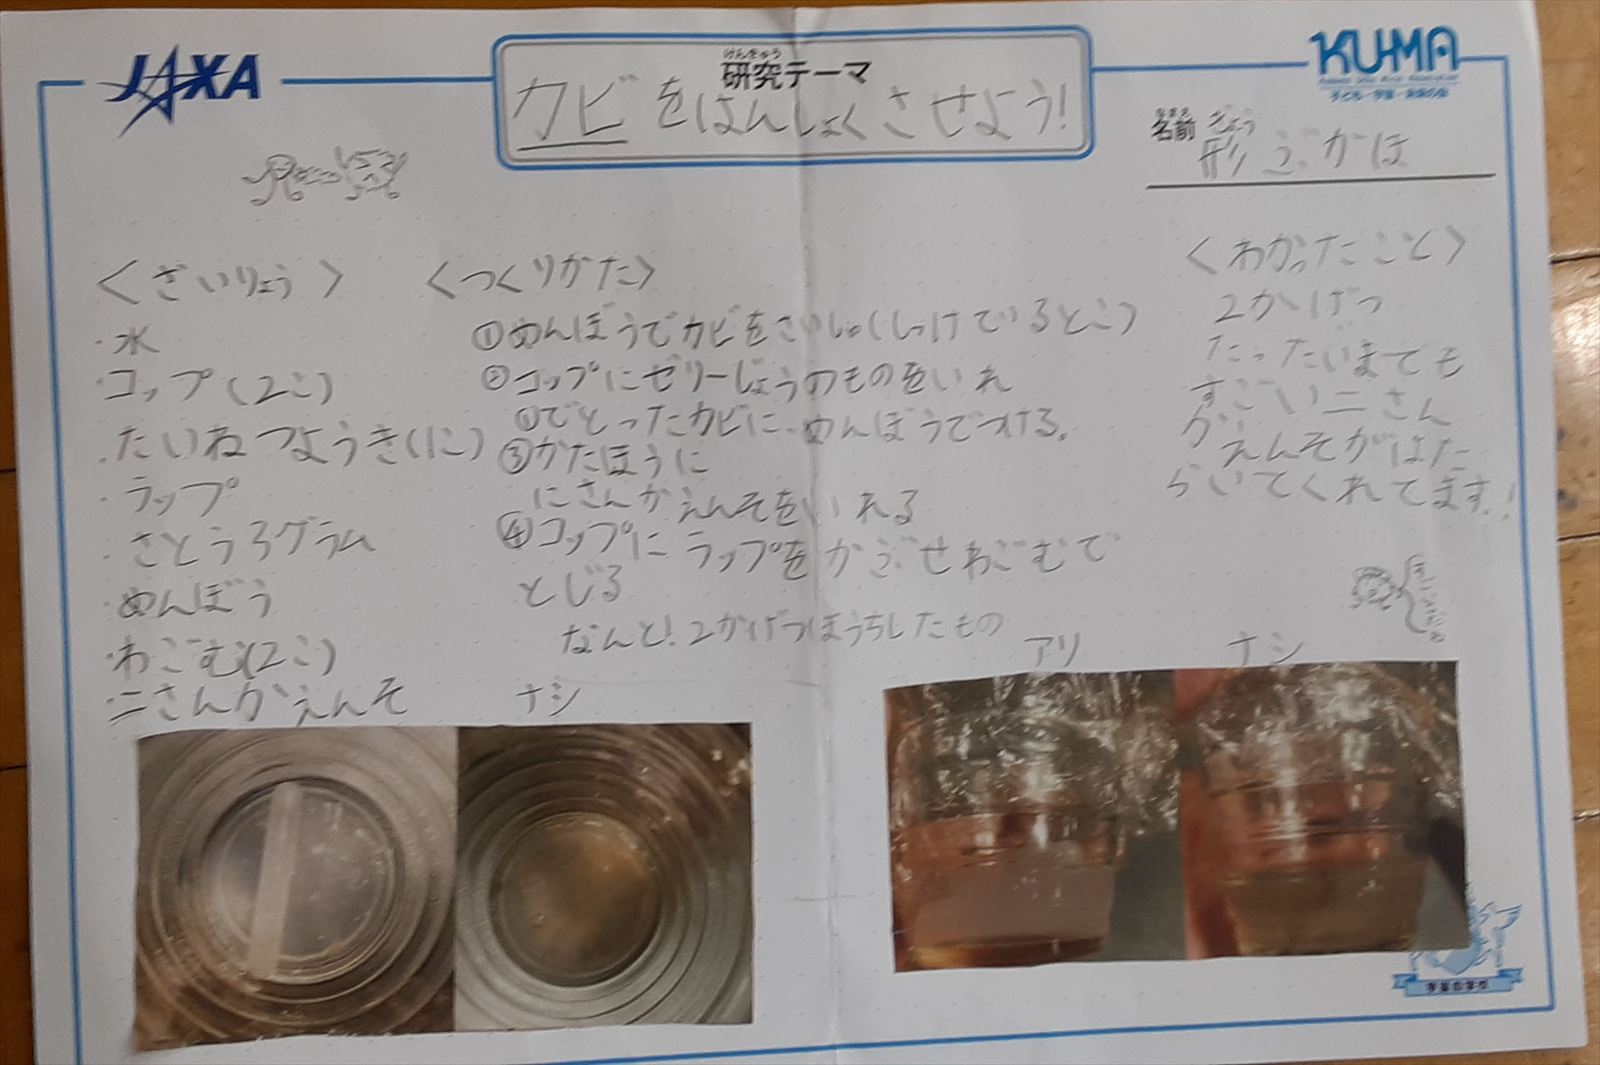 JAXA
けんきゅう
研究テーマ
カビをはんしょくさせよう!
KUMA
子ども・宇宙・未来の会
なまえ
名前
ぎょう
形ぶかほ
<ざいりょう>
・水
・コップ(2こ)
・たいねつようき(1こ)
・ラップ
・さとう3グラム
・めんぼう
・わごむ(2こ)
ニさんかえんそ
<つくりかた>
①めんぼうでカビをさいしゅ(しっけているとこ)
②コップにゼリーじょうのものをいれ
①でとったカビに、めんぼうでつける。
③かたほうに
にさんかえんそをいれる
④コップにラップをかぶせわごむで
とじる
なんと!2かげつほうちしたもの
<わかったこと>
2かげつ
たったいまでも
すごいニさん
かえんそがはた
らいてくれてます!
ナシ
アリ
ナシ
宇宙の学校